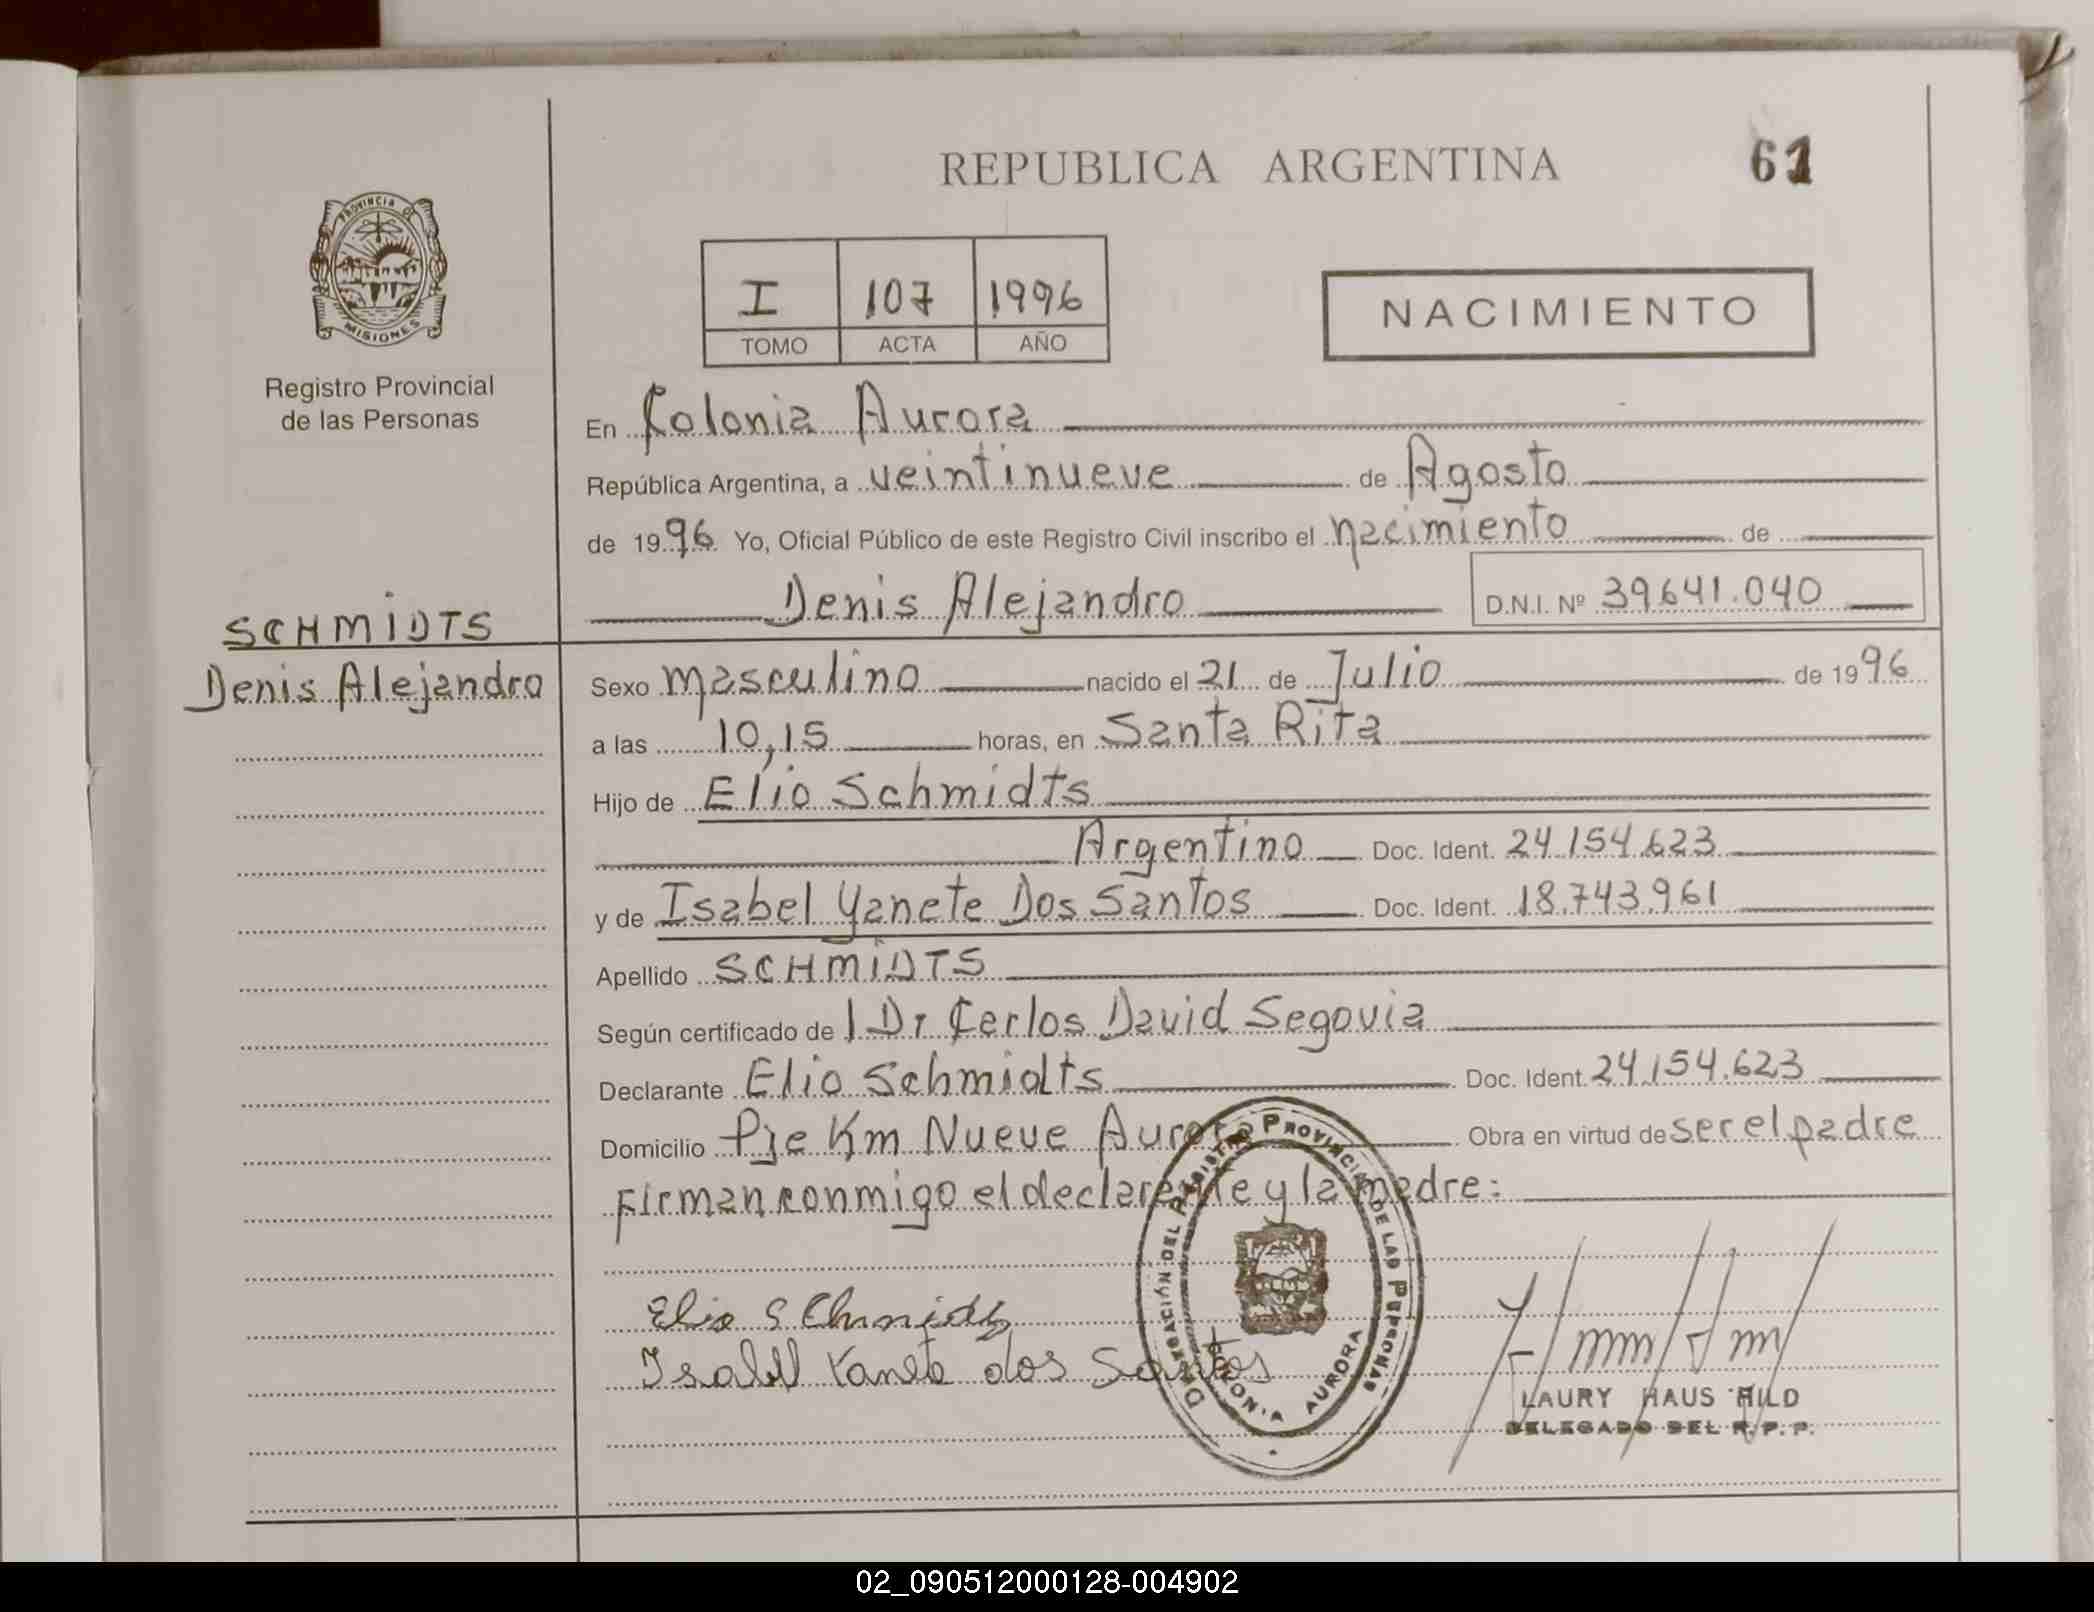 REPUBLICA ARGENTINA
61
PROVINCIA DE
MISIONES
Registro Provincial
de las Personas
I 107 1996
TOMO ACTA AÑO
NACIMIENTO
En Colonia Aurora
República Argentina, a veintinueve de Agosto
de 1996 Yo, Oficial Público de este Registro Civil inscribo el nacimiento de
Denis Alejandro D.N.I. Nº 39641.040
SCHMIDTS
Denis Alejandro
Sexo masculino nacido el 21 de Julio de 1996
a las 10,15 horas, en Santa Rita
Hijo de Elio Schmidts
Argentino Doc. Ident. 24.154.623
y de Isabel Yanete Dos Santos Doc. Ident. 18.743.961
Apellido SCHMIDTS
Según certificado de l Dr Carlos David Segovia
Declarante Elio Schmidts Doc. Ident. 24.154.623
Domicilio Pje Km Nueve Aurora Obra en virtud de ser el padre
Firman conmigo el declarante y la madre:
DELEGACIÓN DEL REGISTRO PROVINCIAL DE LAS PERSONAS
COLONIA AURORA
Elio Schmidts
Isabel Yanete dos Santos
LAURY HAUS HILD
DELEGADO DEL R.P.P.
02_090512000128-004902